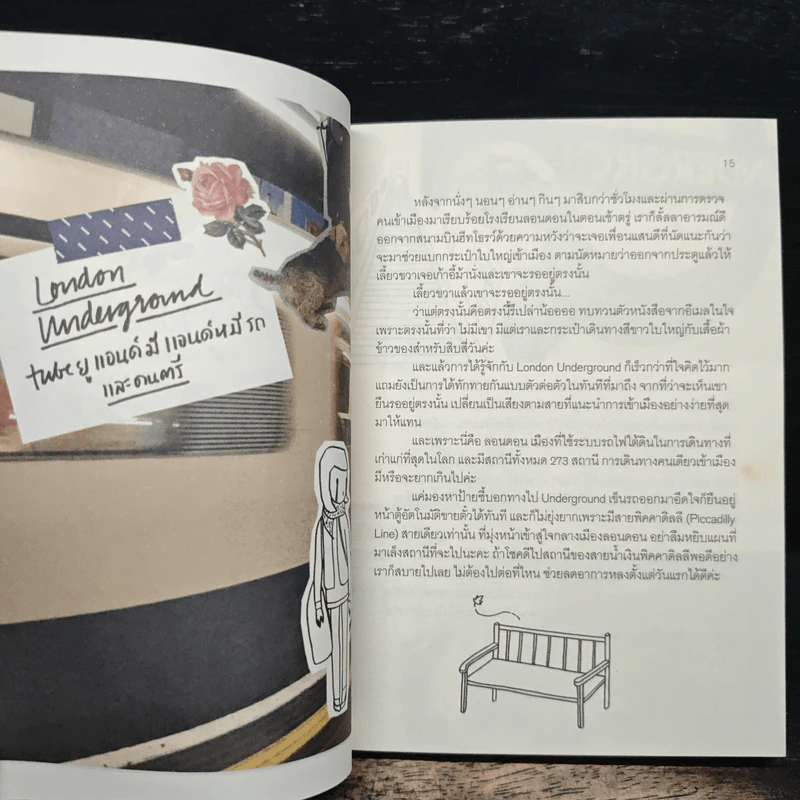 London
Underground
tube ยู แอนด์ มี แอนด์ หมี รถ
และดนตรี
15
หลังจากนั่งๆ นอนๆ อ่านๆ กินๆ มาสิบกว่าชั่วโมงและผ่านการตรวจ
คนเข้าเมืองมาเรียบร้อยโรงเรียนลอนดอนในตอนเช้าตรู่ เราก็ลั้ลลาอารมณ์ดี
ออกจากสนามบินฮีทโธรว์ด้วยความหวังว่าจะเจอเพื่อนแสนดีที่นัดแนะกันว่า
จะมาช่วยแบกกระเป๋าใบใหญ่เข้าเมือง ตามนัดหมายว่าออกจากประตูแล้วให้
เลี้ยวขวาเจอเก้าอี้ม้านั่งและเขาจะรออยู่ตรงนั้น
เลี้ยวขวาแล้วเขาจะรออยู่ตรงนั้น...
ว่าแต่ตรงนั้นคือตรงนี้รึเปล่าน้ออออ ทบทวนตัวหนังสือจากอีเมลในใจ
เพราะตรงนั้นที่ว่า ไม่มีเขา มีแต่เราและกระเป๋าเดินทางสีขาวใบใหญ่กับเสื้อผ้า
ข้าวของสำหรับสิบสี่วันค่ะ
และแล้วการได้รู้จักกับ London Underground ก็เร็วกว่าที่ใจคิดไว้มาก
แถมยังเป็นการได้ทักทายกันแบบตัวต่อตัวในทันทีที่มาถึง จากที่ว่าจะเห็นเขา
ยืนรออยู่ตรงนั้น เปลี่ยนเป็นเสียงตามสายที่แนะนำการเข้าเมืองอย่างง่ายที่สุด
มาให้แทน
และเพราะนี่คือ ลอนดอน เมืองที่ใช้ระบบรถไฟใต้ดินในการเดินทางที่
เก่าแก่ที่สุดในโลก และมีสถานีทั้งหมด 273 สถานี การเดินทางคนเดียวเข้าเมือง
มีหรือจะยากเกินไปค่ะ
แค่มองหาป้ายชี้บอกทางไป Underground เข็นรถออกมาอึดใจก็ยืนอยู่
หน้าตู้อัตโนมัติขายตั๋วได้ทันที และก็ไม่ยุ่งยากเพราะมีสายพิคคาดิลลี (Piccadilly
Line) สายเดียวเท่านั้น ที่มุ่งหน้าเข้าสู่ใจกลางเมืองลอนดอน อย่าลืมหยิบแผนที่
มาเล็งสถานีที่จะไปนะคะ ถ้าโชคดีไปสถานีของสายน้ำเงินพิคคาดิลลีพอดีอย่าง
เราก็สบายไปเลย ไม่ต้องไปต่อที่ไหน ช่วยลดอาการหลงตั้งแต่วันแรกได้ดีค่ะ